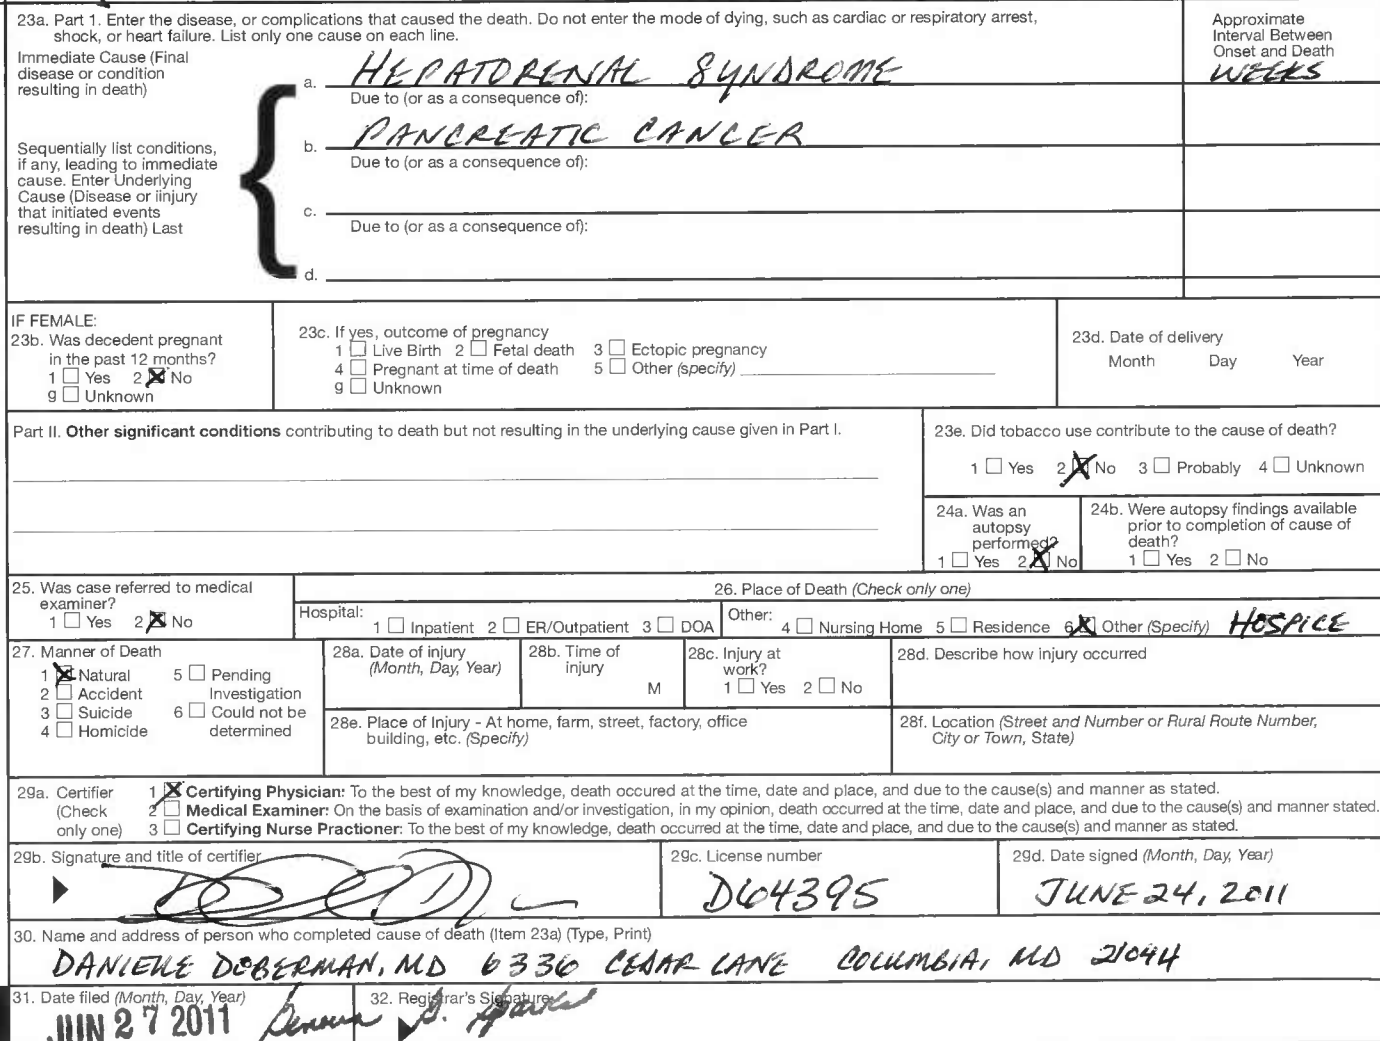 23a. Part 1. Enter the disease, or complications that caused the death. Do not enter the mode of dying, such as cardiac or respiratory arrest,
shock, or heart failure. List only one cause on each line.
Approximate
Interval Between
Onset and Death
Immediate Cause (Final
disease or condition
resulting in death)
a. HEPATORENAL SYNDROME
WEEKS
Due to (or as a consequence of):
b. PANCREATIC CANCER
Due to (or as a consequence of):
Sequentially list conditions,
if any, leading to immediate
cause. Enter Underlying
Cause (Disease or iinjury
that initiated events
resulting in death) Last
c.
Due to (or as a consequence of):
d.
IF FEMALE:
23b. Was decedent pregnant
in the past 12 months?
1 ☐ Yes 2 ☒ No
9 ☐ Unknown
23c. If yes, outcome of pregnancy
1 ☐ Live Birth 2 ☐ Fetal death 3 ☐ Ectopic pregnancy
4 ☐ Pregnant at time of death 5 ☐ Other (specify)
9 ☐ Unknown
23d. Date of delivery
Month Day Year
Part II. Other significant conditions contributing to death but not resulting in the underlying cause given in Part I.
23e. Did tobacco use contribute to the cause of death?
1 ☐ Yes 2 ☒ No 3 ☐ Probably 4 ☐ Unknown
24a. Was an
autopsy
performed?
1 ☐ Yes 2 ☒ No
24b. Were autopsy findings available
prior to completion of cause of
death?
1 ☐ Yes 2 ☐ No
25. Was case referred to medical
examiner?
1 ☐ Yes 2 ☒ No
26. Place of Death (Check only one)
Hospital:
1 ☐ Inpatient 2 ☐ ER/Outpatient 3 ☐ DOA
Other:
4 ☐ Nursing Home 5 ☐ Residence 6 ☒ Other (Specify) HOSPICE
27. Manner of Death
1 ☒ Natural 5 ☐ Pending
2 ☐ Accident Investigation
3 ☐ Suicide 6 ☐ Could not be
4 ☐ Homicide determined
28a. Date of injury
(Month, Day, Year)
28b. Time of
injury
M
28c. Injury at
work?
1 ☐ Yes 2 ☐ No
28d. Describe how injury occurred
28e. Place of Injury - At home, farm, street, factory, office
building, etc. (Specify)
28f. Location (Street and Number or Rural Route Number,
City or Town, State)
29a. Certifier
(Check
only one)
1 ☒ Certifying Physician: To the best of my knowledge, death occured at the time, date and place, and due to the cause(s) and manner as stated.
2 ☐ Medical Examiner: On the basis of examination and/or investigation, in my opinion, death occurred at the time, date and place, and due to the cause(s) and manner stated.
3 ☐ Certifying Nurse Practioner: To the best of my knowledge, death occurred at the time, date and place, and due to the cause(s) and manner as stated.
29b. Signature and title of certifier
29c. License number
D64395
29d. Date signed (Month, Day, Year)
JUNE 24, 2011
30. Name and address of person who completed cause of death (Item 23a) (Type, Print)
DANIELLE DOBERMAN, MD 6336 CEDAR LANE COLUMBIA, MD 21044
31. Date filed (Month, Day, Year)
JUN 27 2011
32. Registrar's Signature